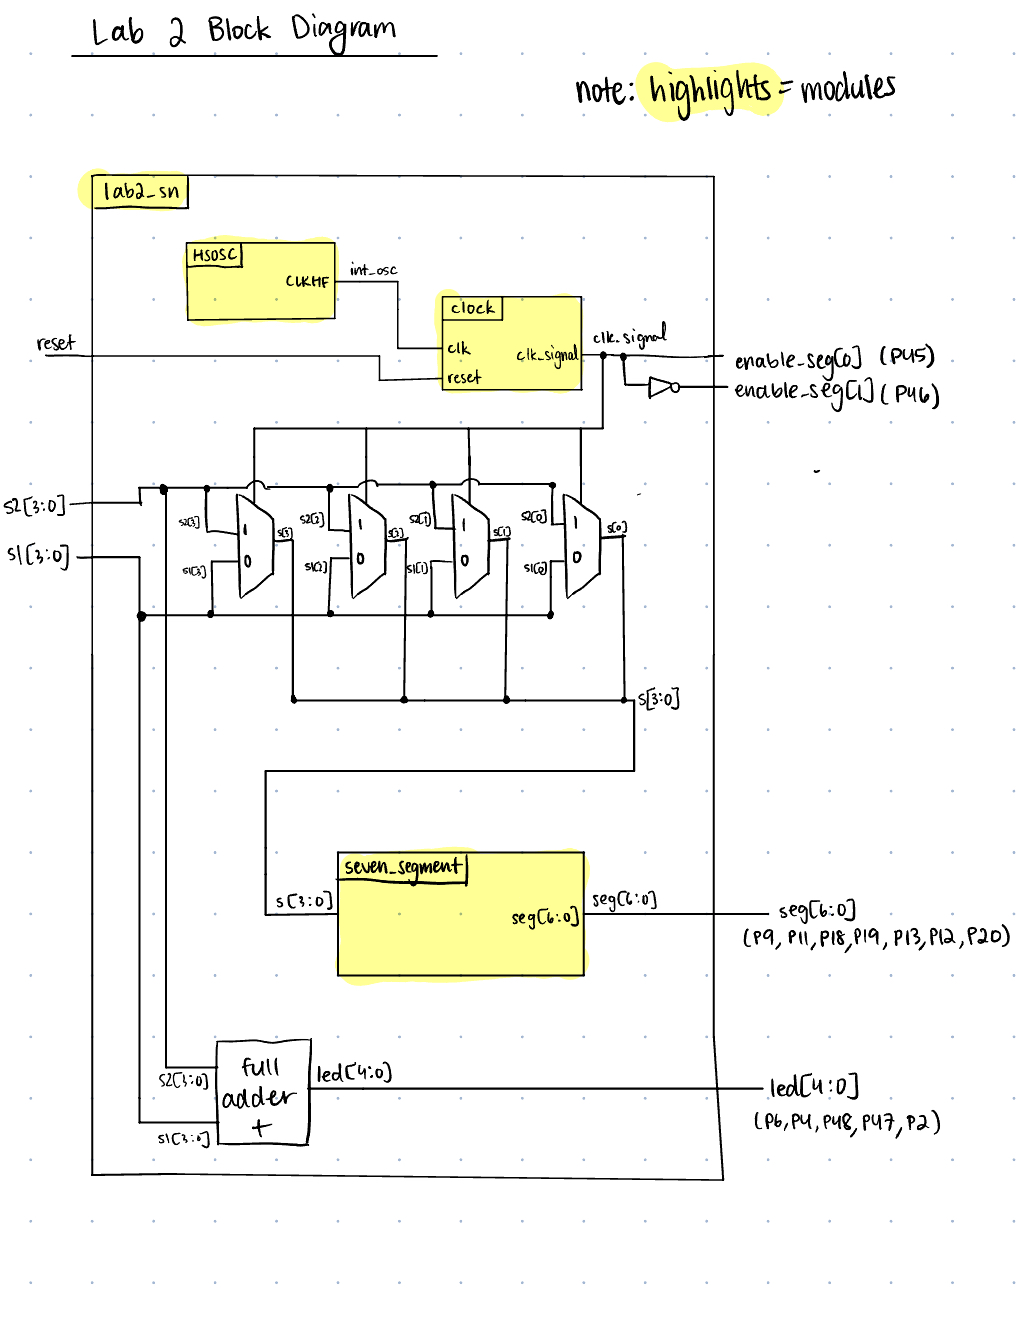 Lab 2 Block Diagram
note: highlights = modules
lab2_sn
HSOSC
CLKHF
int_osc
clock
clk
clk_signal
reset
reset
clk_signal
enable_seg[0] (P45)
enable_seg[1] (P46)
s2[3:0]
s1[3:0]
s2[3]
1
0
s1[3]
s[3]
s2[2]
1
0
s1[2]
s[2]
s2[1]
1
0
s1[1]
s[1]
s2[0]
1
0
s1[0]
s[0]
s[3:0]
seven_segment
s[3:0]
seg[6:0]
seg[6:0]
seg[6:0]
(P9, P11, P18, P19, P13, P12, P20)
full
adder
+
s2[3:0]
s1[3:0]
led[4:0]
led[4:0]
(P6, P4, P48, P47, P2)